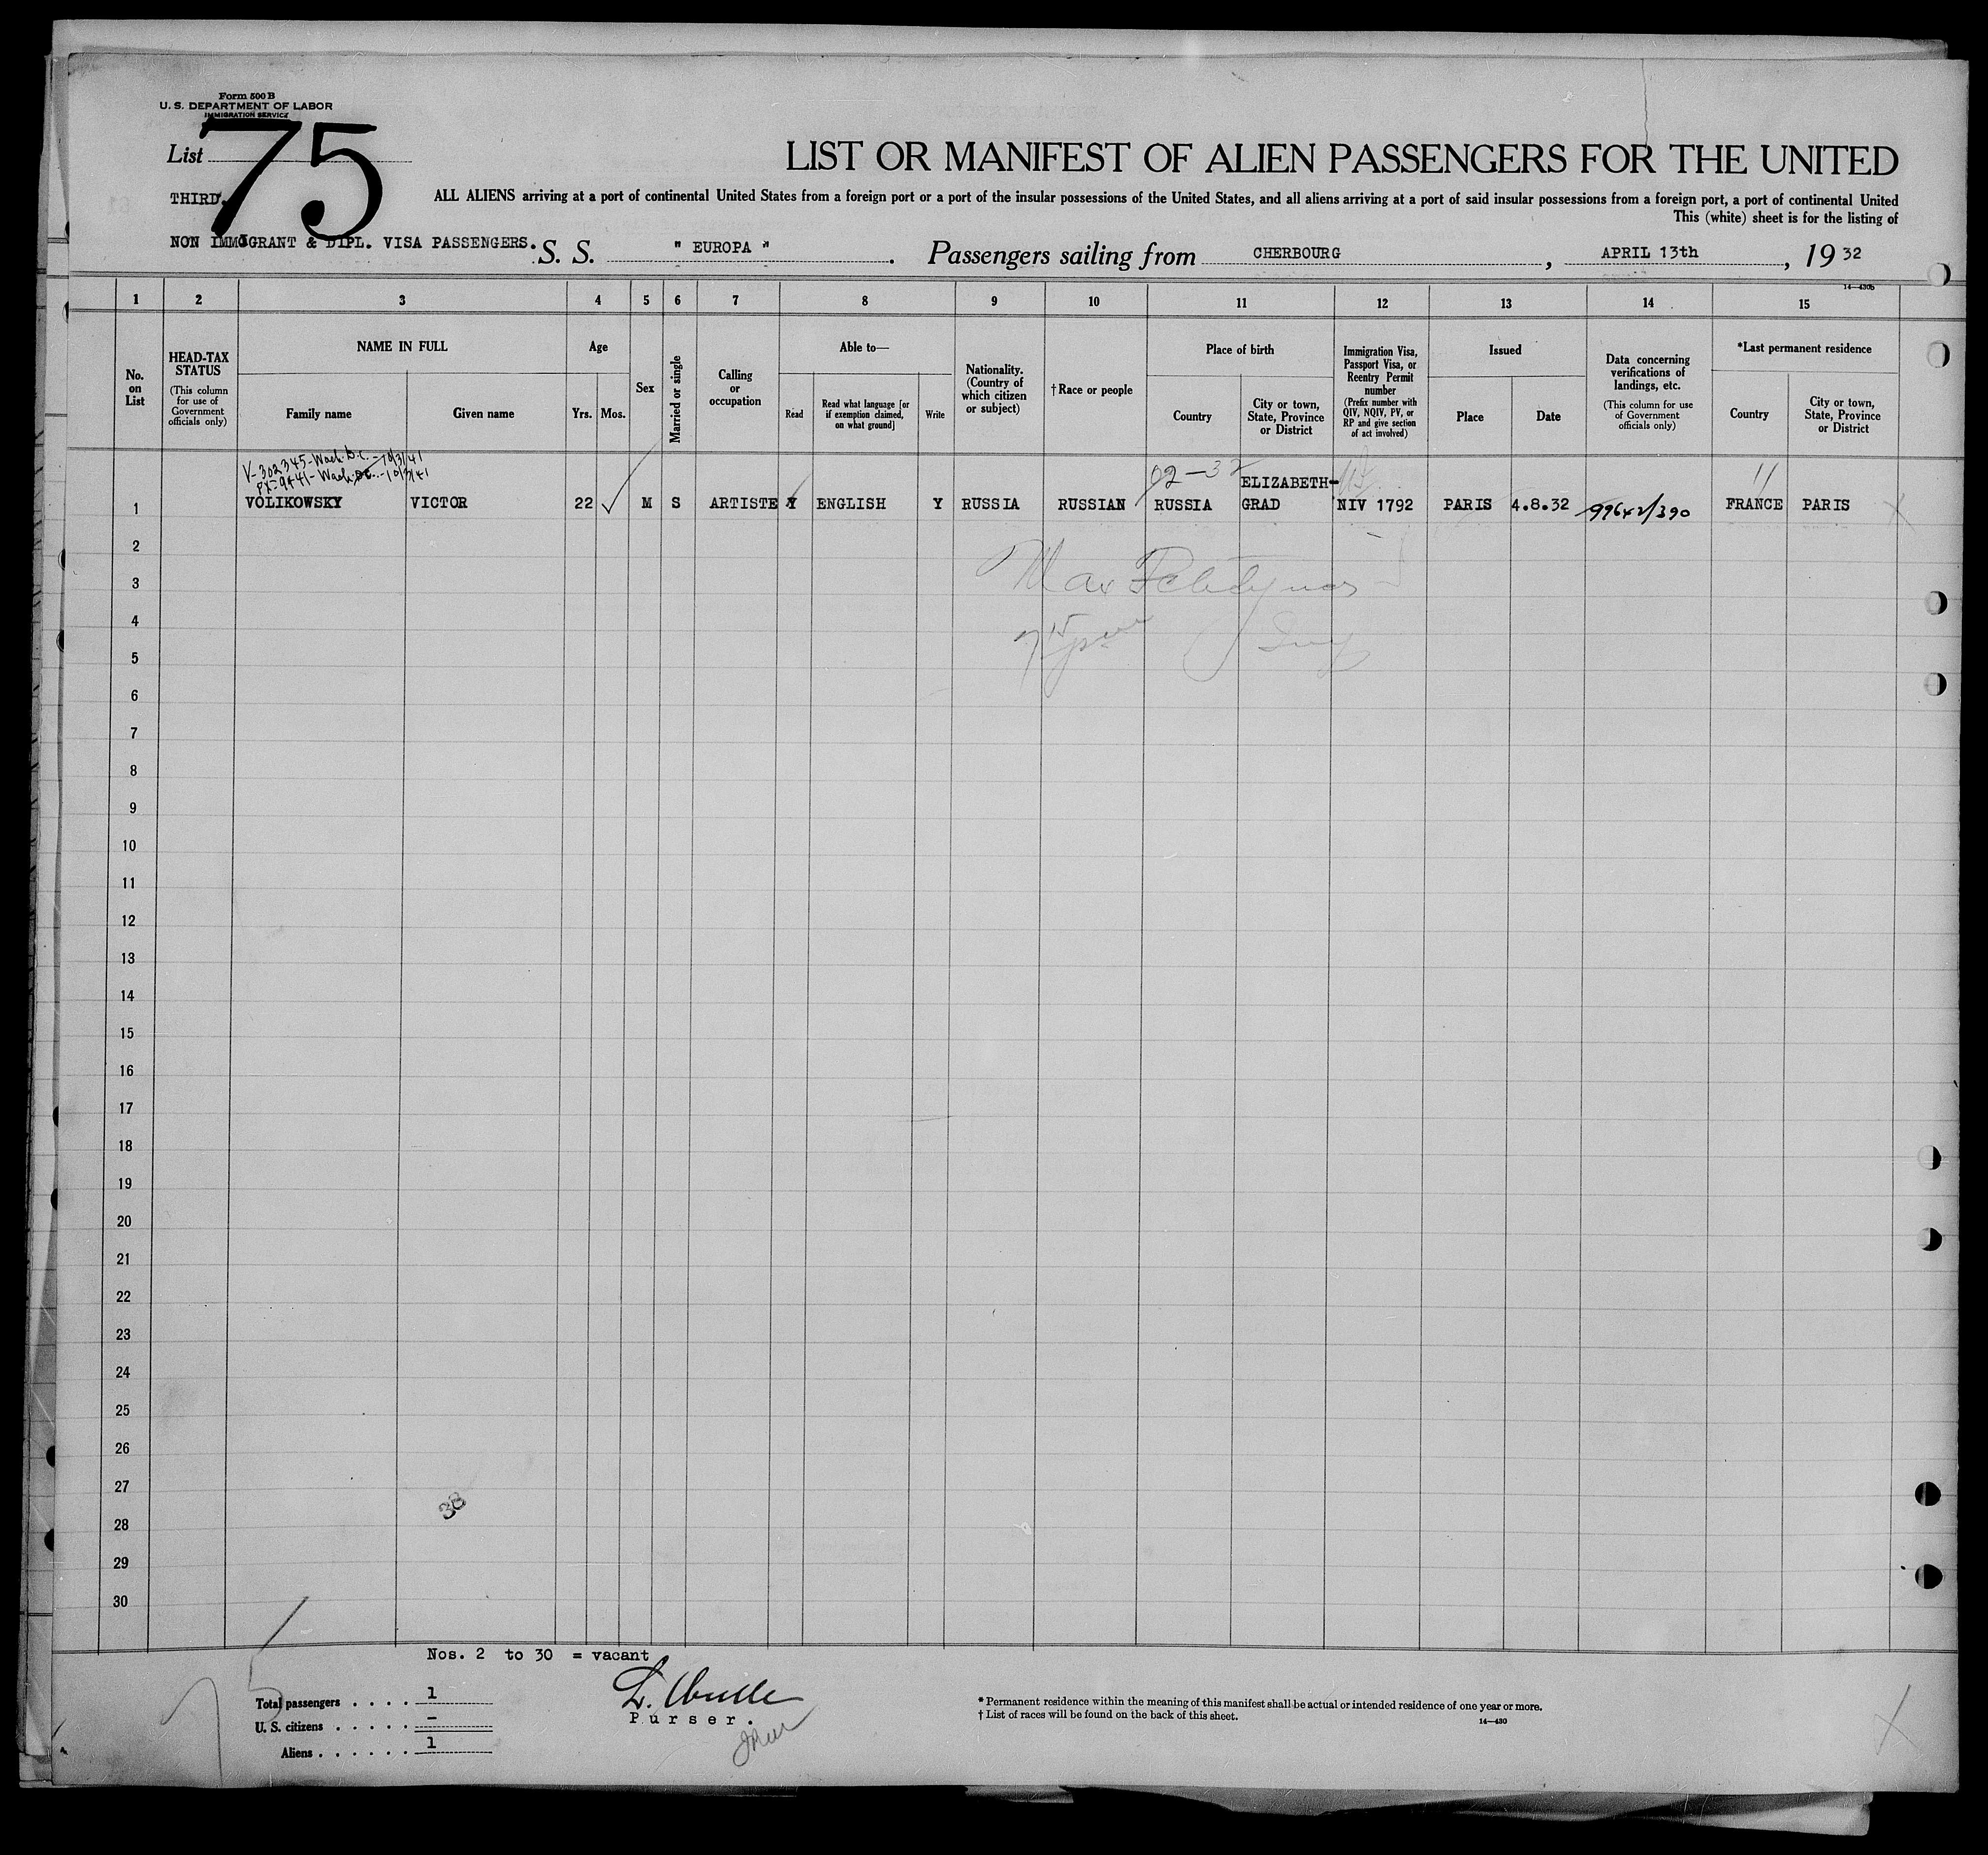 Form 500 B
U. S. DEPARTMENT OF LABOR
IMMIGRATION SERVICE
List 75
LIST OR MANIFEST OF ALIEN PASSENGERS FOR THE UNITED
THIRD.
ALL ALIENS arriving at a port of continental United States from a foreign port or a port of the insular possessions of the United States, and all aliens arriving at a port of said insular possessions from a foreign port, a port of continental United
This (white) sheet is for the listing of
NON IMMIGRANT & DIPL. VISA PASSENGERS. S. S. " EUROPA ". Passengers sailing from CHERBOURG, APRIL 13th, 19 32
14—430b
1 2 3 4 5 6 7 8 9 10 11 12 13 14 15
No. on List
HEAD-TAX STATUS
(This column for use of Government officials only)
NAME IN FULL
Family name
Given name
Age
Yrs.
Mos.
Sex
Married or single
Calling or occupation
Able to—
Read
Read what language [or if exemption claimed, on what ground]
Write
Nationality. (Country of which citizen or subject)
†Race or people
Place of birth
Country
City or town, State, Province or District
Immigration Visa, Passport Visa, or Reentry Permit number
(Prefix number with QIV, NQIV, PV, or RP and give section of act involved)
Issued
Place
Date
Data concerning verifications of landings, etc.
(This column for use of Government officials only)
*Last permanent residence
Country
City or town, State, Province or District
V-302345-Wash. D.C. - 10/3/41
PX-9441-Wash. D.C. - 10/3/41
1 VOLIKOWSKY VICTOR 22 M S ARTISTE Y ENGLISH Y RUSSIA RUSSIAN RUSSIA ELIZABETH-GRAD NIV 1792 PARIS 4.8.32 99642/390 FRANCE PARIS
2
3
4
5
6
7
8
9
10
11
12
13
14
15
16
17
18
19
20
21
22
23
24
25
26
27
38
28
29
30
Nos. 2 to 30 = vacant
75
Total passengers . . . . 1
U. S. citizens . . . . . –
Aliens . . . . . . 1
Purser.
* Permanent residence within the meaning of this manifest shall be actual or intended residence of one year or more.
† List of races will be found on the back of this sheet.
14—430